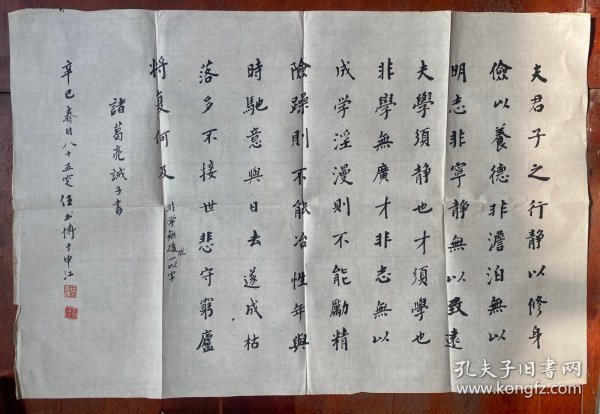 夫君子之行静以修身
儉以養德非澹泊無以
明志非寧静無以致遠
夫學須静也才須學也
非學無廣才非志無以
成学淫漫則不能勵精
險躁則不能冶性年與
時馳意與日去遂成枯
落多不接世悲守窮廬
將復何及
非学無後一以字
諸葛亮誡子書
辛巳春日八十五叟任书博于申江
孔夫子旧书网
www.kongfz.com